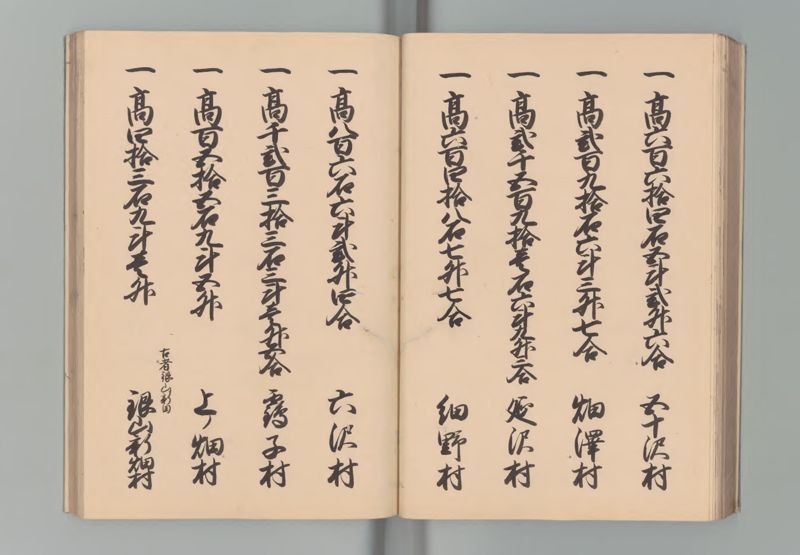 一 高六百六拾四石五斗弐升六合 五十沢村
一 高弐百九拾石六斗三升七合 畑澤村
一 高弐千五百九拾壱石六斗九升二合 延沢村
一 高六百四拾八石七升七合 細野村
一 高八百六石六斗弐升四合 六沢村
一 高千弐百三拾三石三斗壱升五合 鶴子村
一 高百五拾五石九斗五升 上ノ畑村
一 高四拾三石九斗壱升 古者銀山新田 銀山新畑村